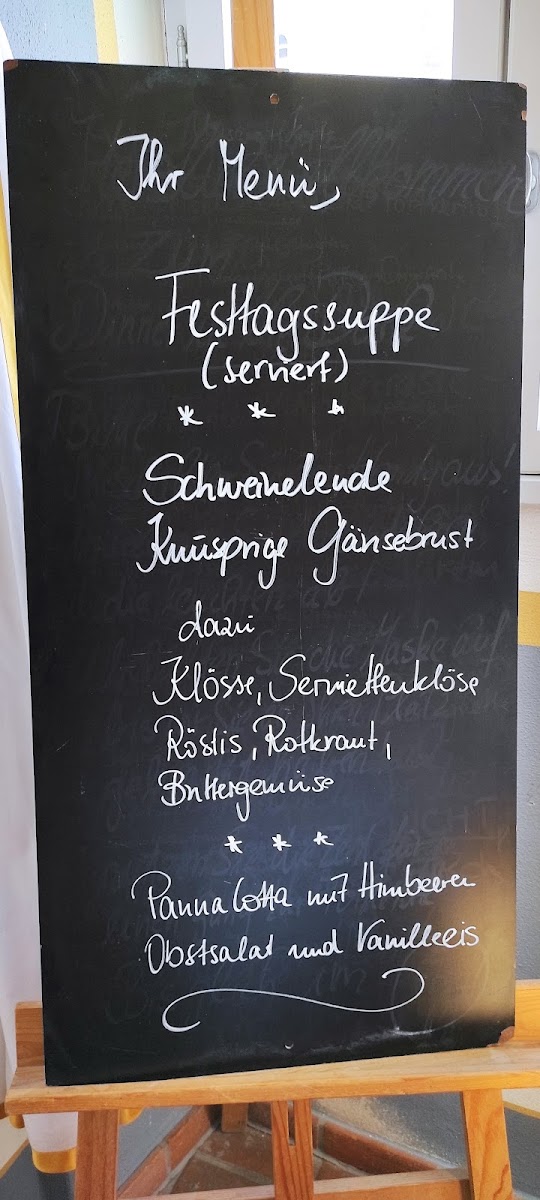 Ihr Menü,
Festtagssuppe
(serviert)
* * *
Schweinelende
Knusprige Gänsebrust
dazu
Klösse, Serviettenklöse
Röstis, Rotkraut,
Buttergemüse
* * *
Panna Cotta mit Himbeeren
Obstsalat und Vanilleeis